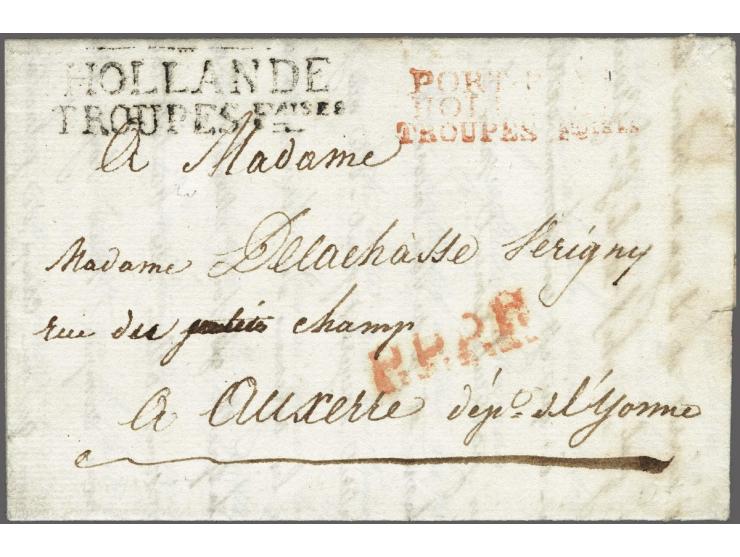 HOLLANDE
TROUPES F.AISES
PORT P
HOLL
TROUPES F.AISES
A Madame
Madame Delachàsse Verigny
rue des petits champ
P.P.P.P
A Auxerre dép.t de l'Yonne